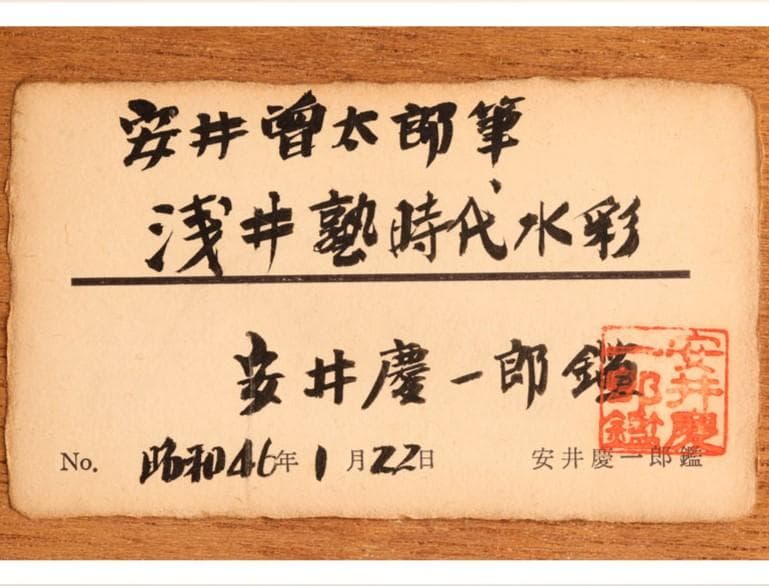 安井曾太郎筆
浅井塾時代水彩
安井慶一郎鑑
安井慶
一郎鑑
No. 昭和46年1月22日
安井慶一郎鑑